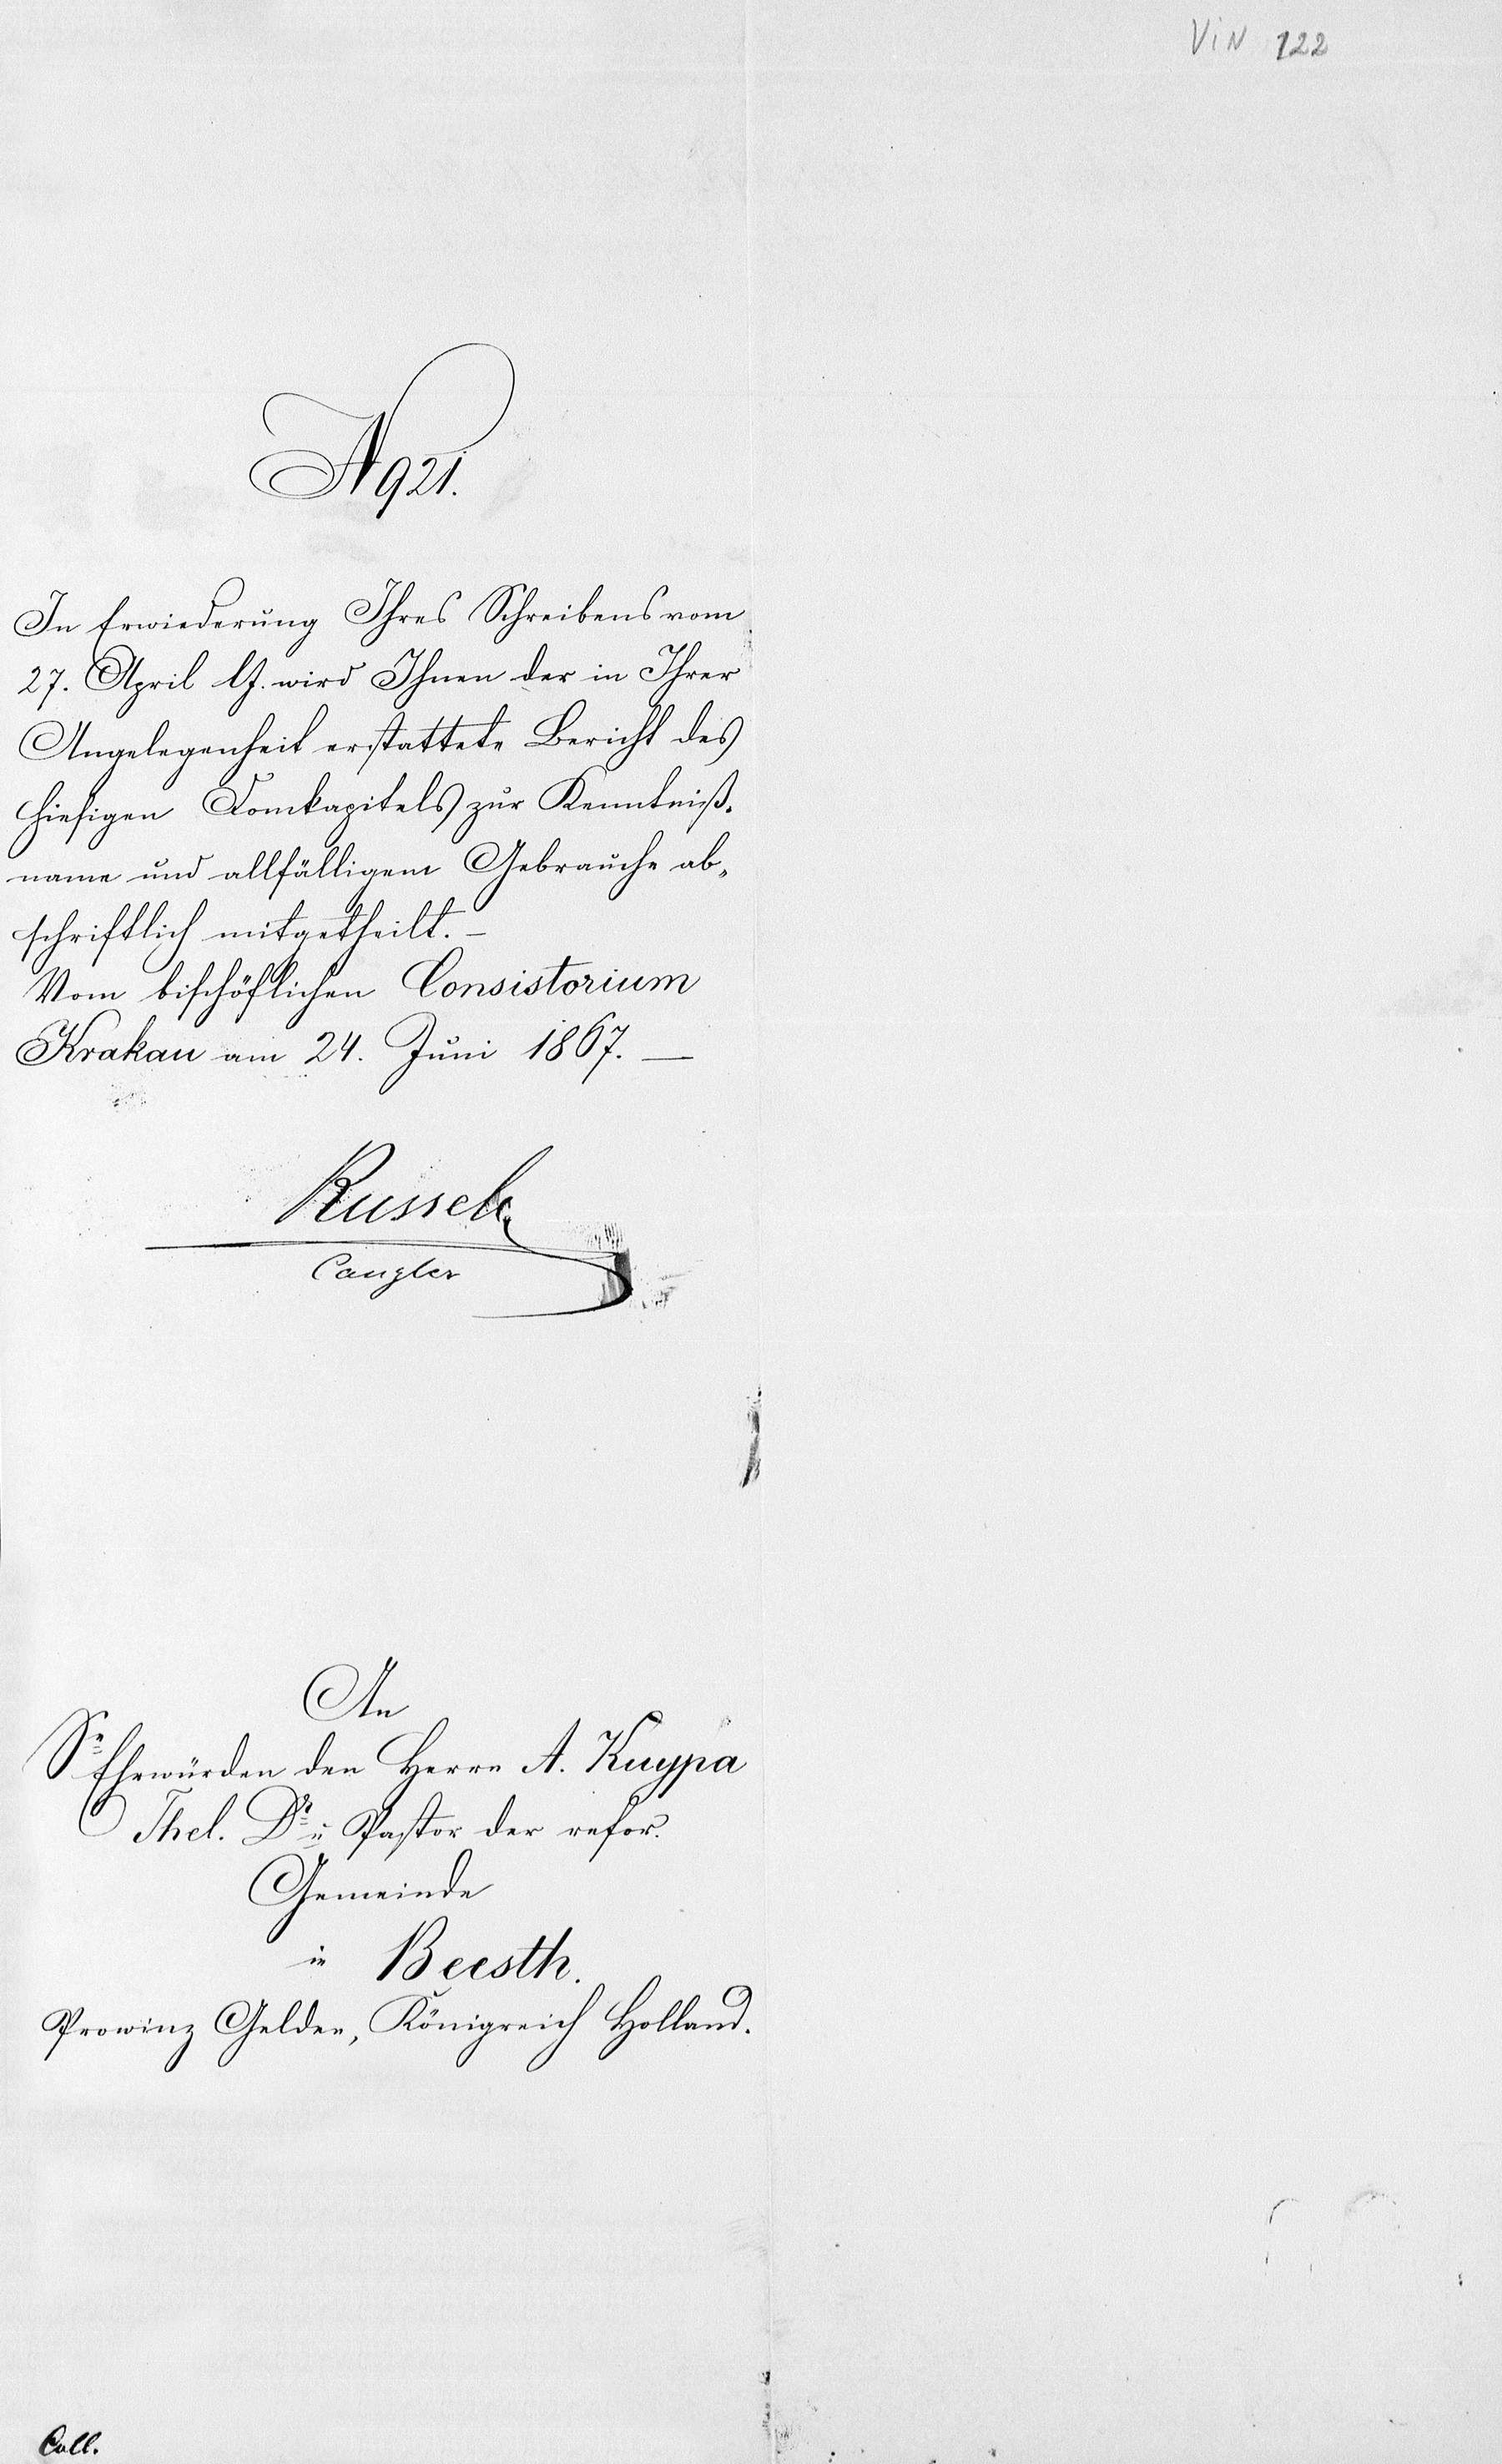 ViN 122
N 921.
In Erwiederung Ihres Schreibens vom
27. April l. J. wird Ihnen der in Ihrer
Angelegenheit erstattete Bericht des
hiesigen Domkapitels zur Kenntniß-
name und allfälligem Gebrauche ab-
schriftlich mitgetheilt. —
Vom bischöflichen Consistorium
Krakau am 24. Juni 1867. —
Cangler
An
Se Ehrwürden den Herrn A. Kuypa
Thel. Dr u Pastor der refor.
Gemeinde
in Beesth.
Prowinz Gelder, Königreich Holland.
Coll.